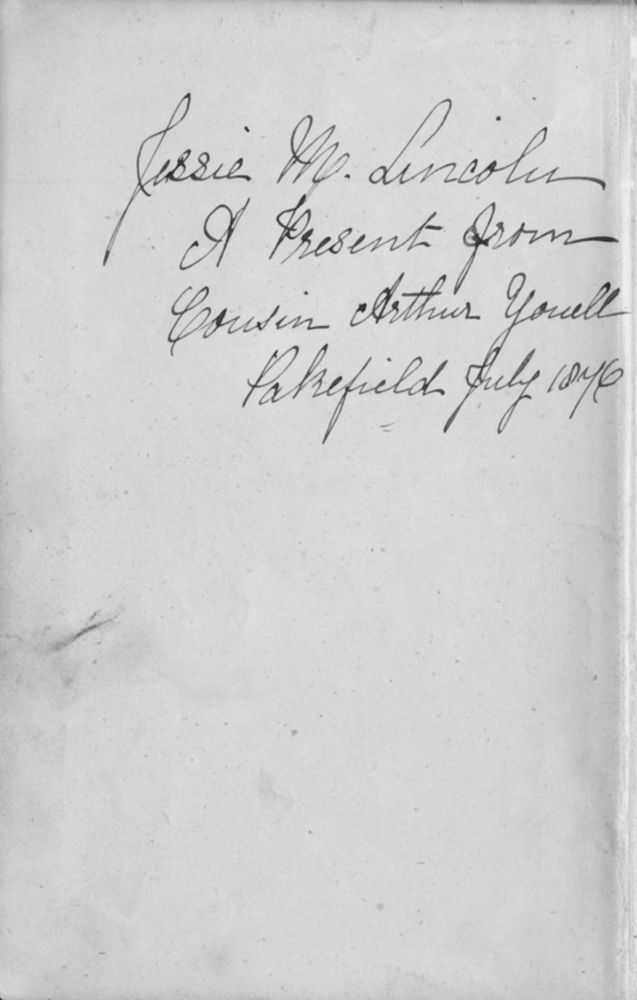 Jessie M. Lincoln
A Present from
Cousin Arthur Youell
Pakefield July 1876